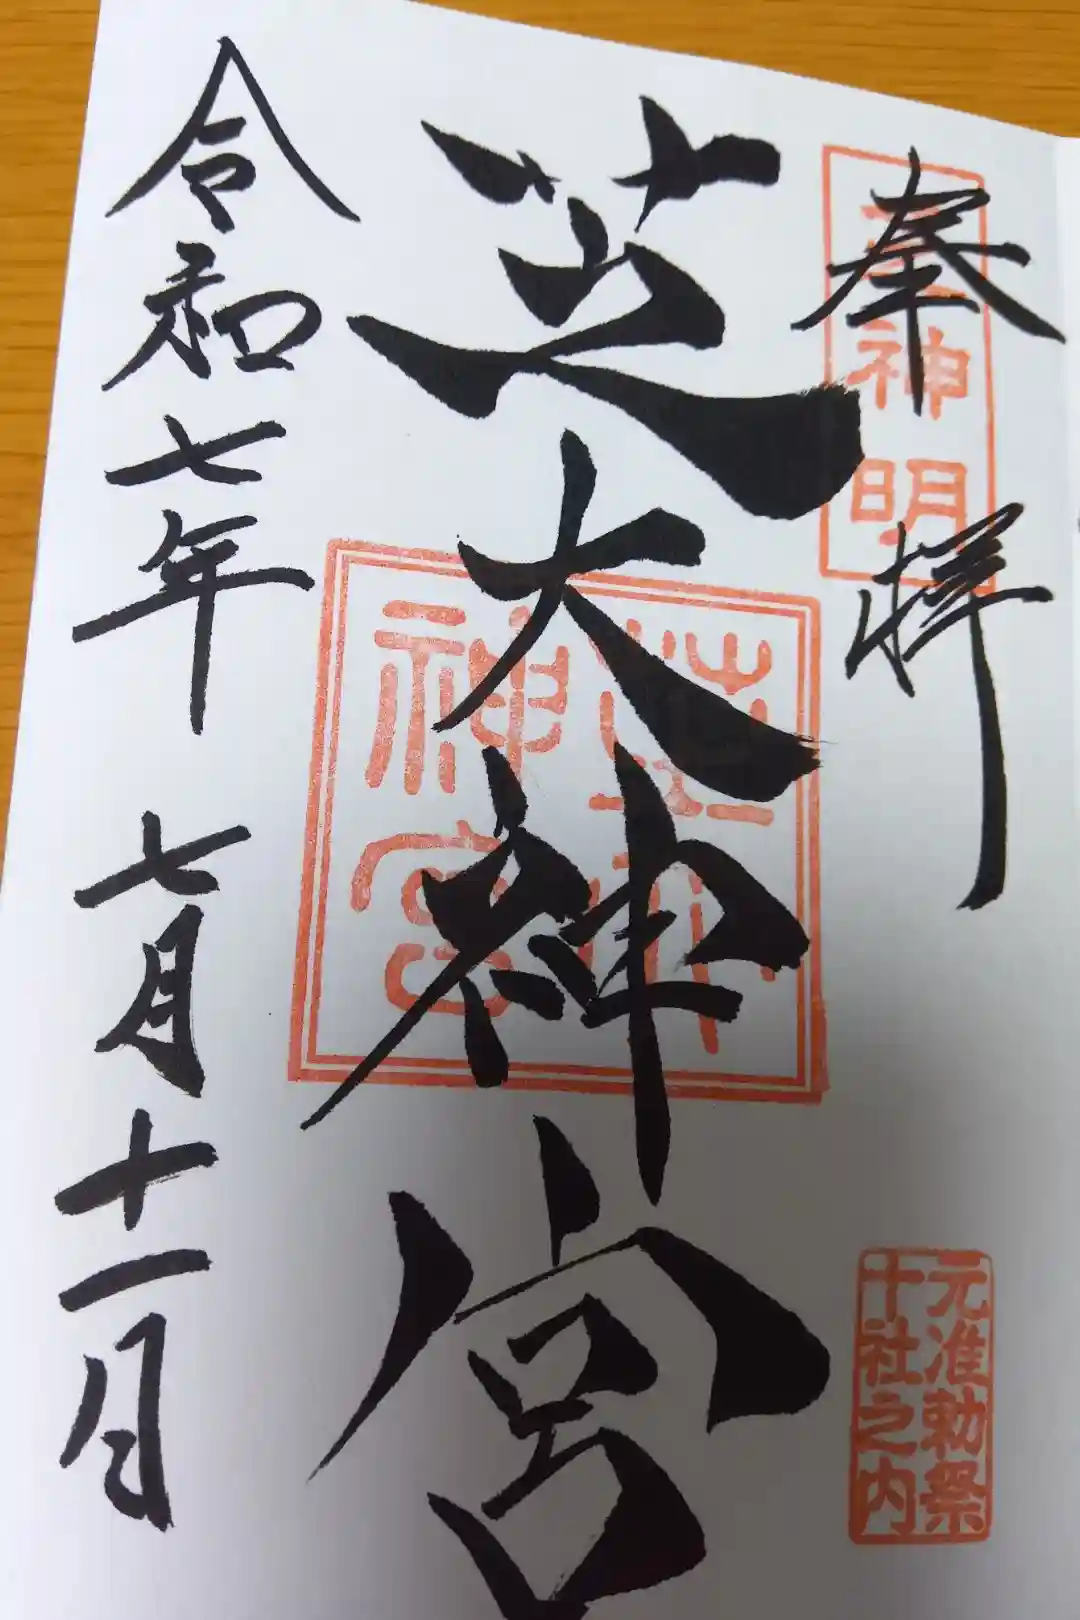 奉拝
芝神明
元准勅祭
十社之内
芝大神宮
芝大
神宮
令和七年 七月十一日